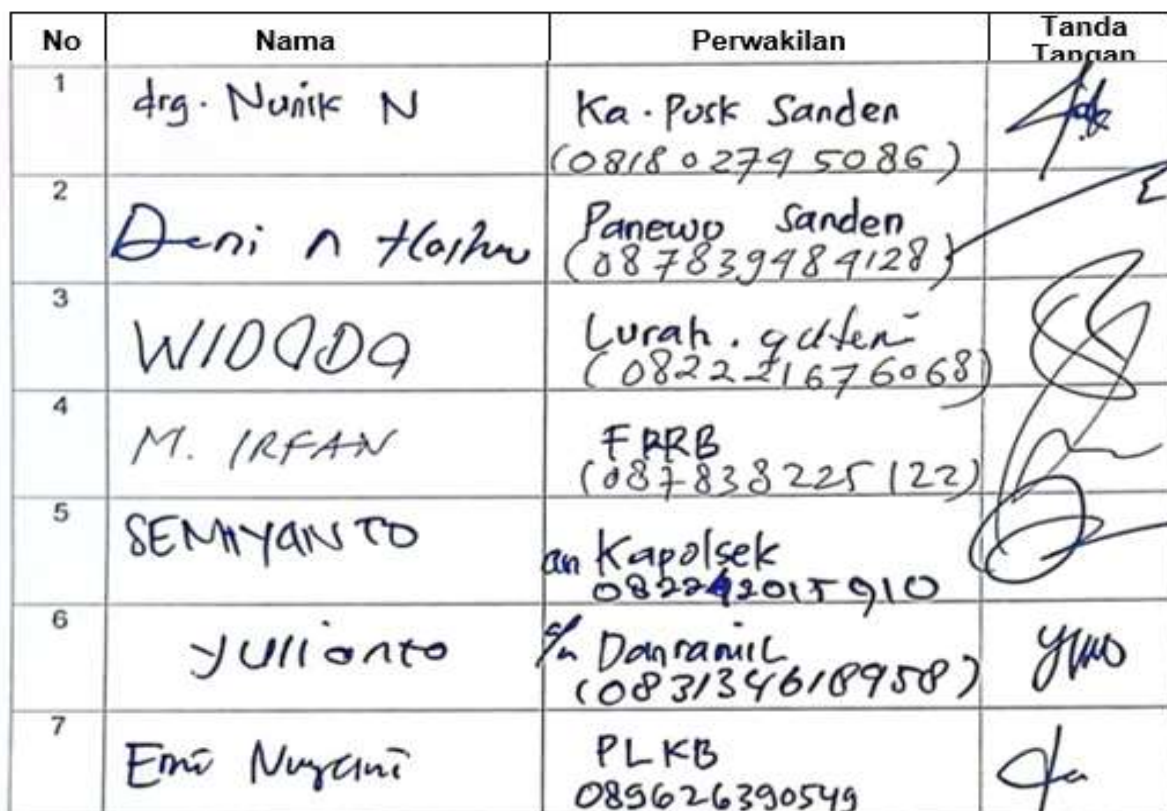 No Nama Perwakilan Tanda Tangan
1 drg. Nunik N Ka. Pusk Sanden
(0818 0279 5086)
2 Deni n Panewo Sanden
(087839484128)
3 WIDODO Lurah.
(082221676068)
4 M. IRFAN FPRB
(087838225122)
5 SEMIYANTO an Kapolsek
6 Yulianto a/n Danramil
(083134618958)
7 Emi PLKB
089626390549